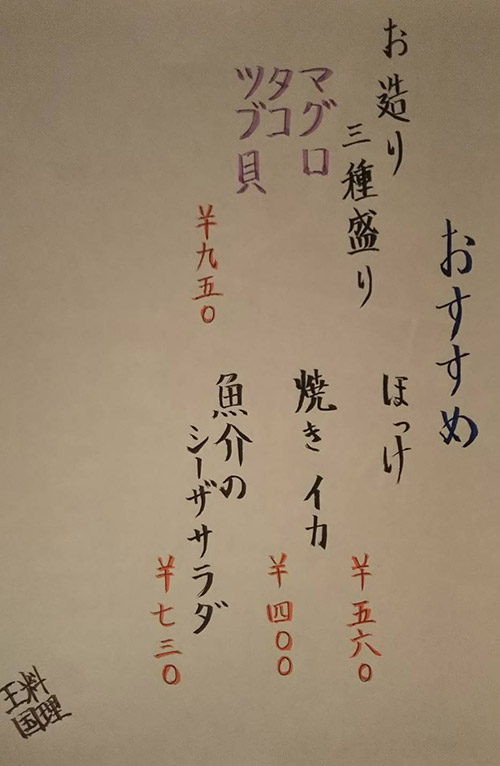 おすすめ
お造り
三種盛り
マグロ
タコ
ツブ貝
￥九五〇
ほっけ
￥五六〇
焼きイカ
￥四〇〇
魚介の
シーザサラダ
￥七三〇
料理
王国